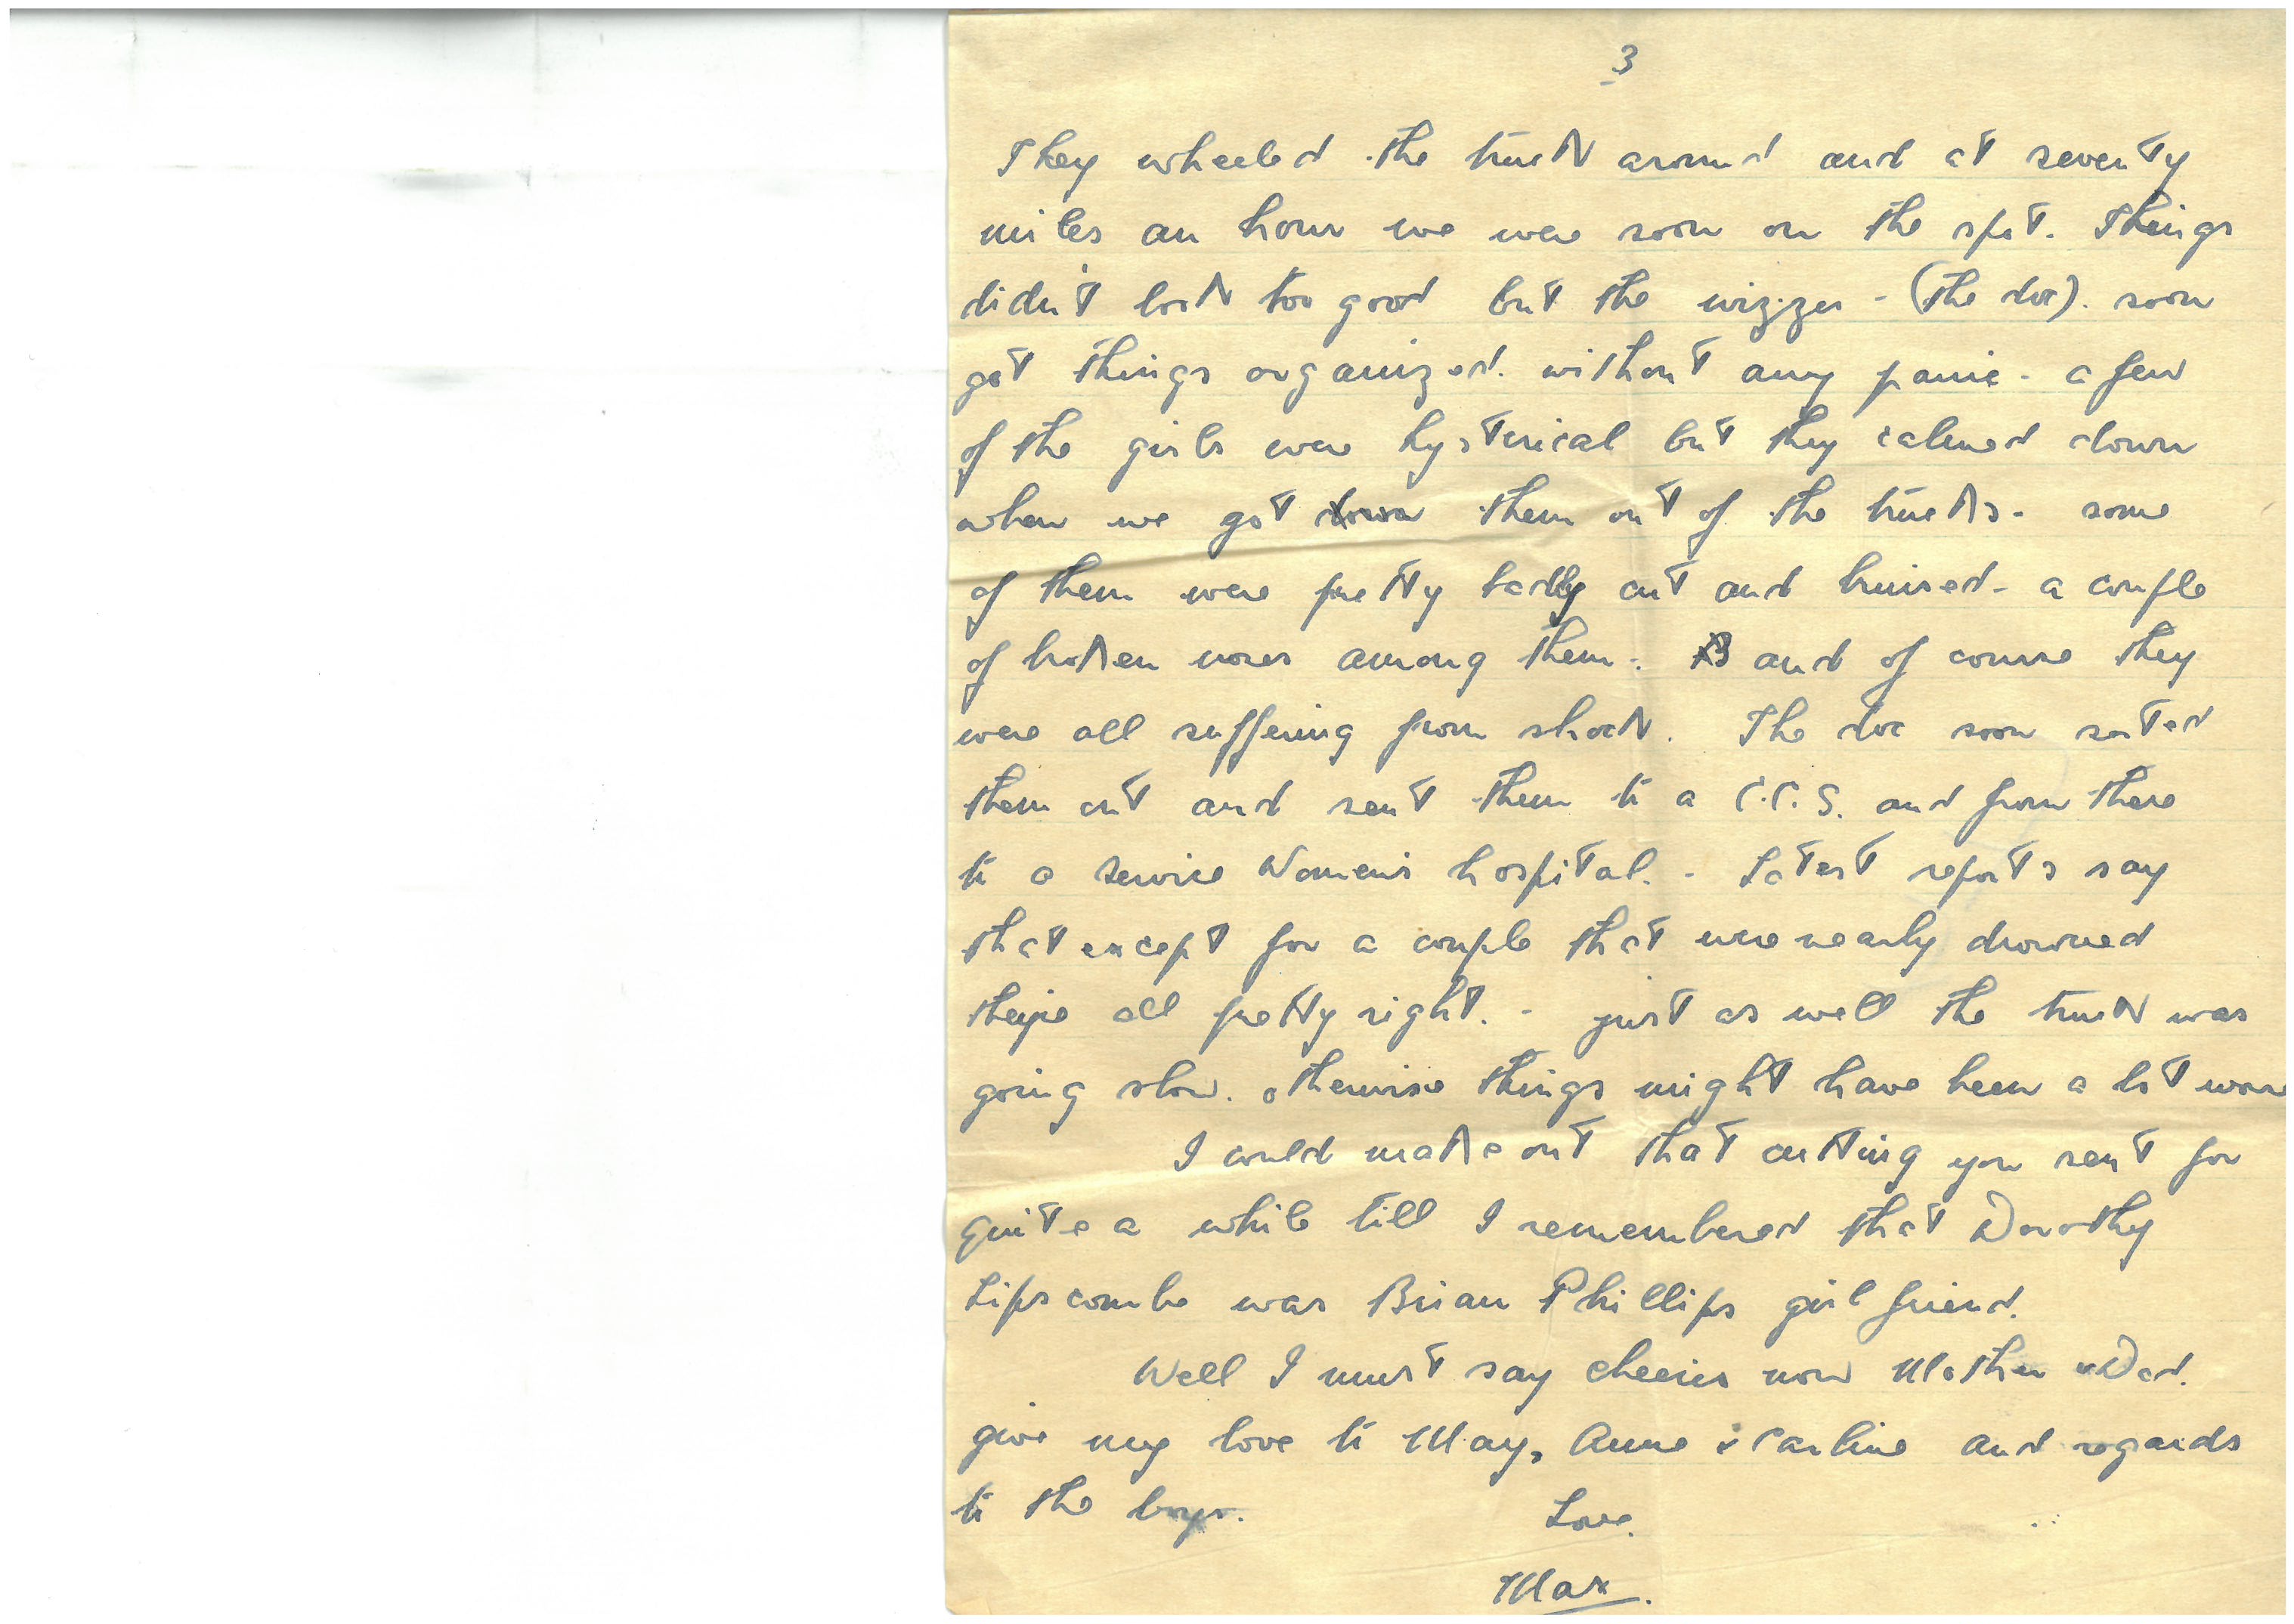 3
They wheeled the truck around and at seventy
miles an hour we were soon on the spot. Things
didn't look too good but the wizzer - (the doc). soon
got things organized. without any panic - a few
of the girls were hysterical but they calmed down
when we got down them out of the trucks - some
of them were pretty badly cut and bruised - a couple
of broken noses among them. and of course they
were all suffering from shock. The doc soon sorted
them out and sent them to a C.C.S. and from there
to a Service Women's hospital. - Latest reports say
that except for a couple that were nearly drowned
they're all pretty right. - just as well the truck was
going slow. otherwise things might have been a lot worse
I could make out that cutting you sent for
quite a while till I remembered that Dorothy
Lipscombe was Brian Phillips girl friend.
Well I must say cheerio now Mother & Dad.
give my love to May, Anne & Carline and regards
to the boys.
Love.
Max.